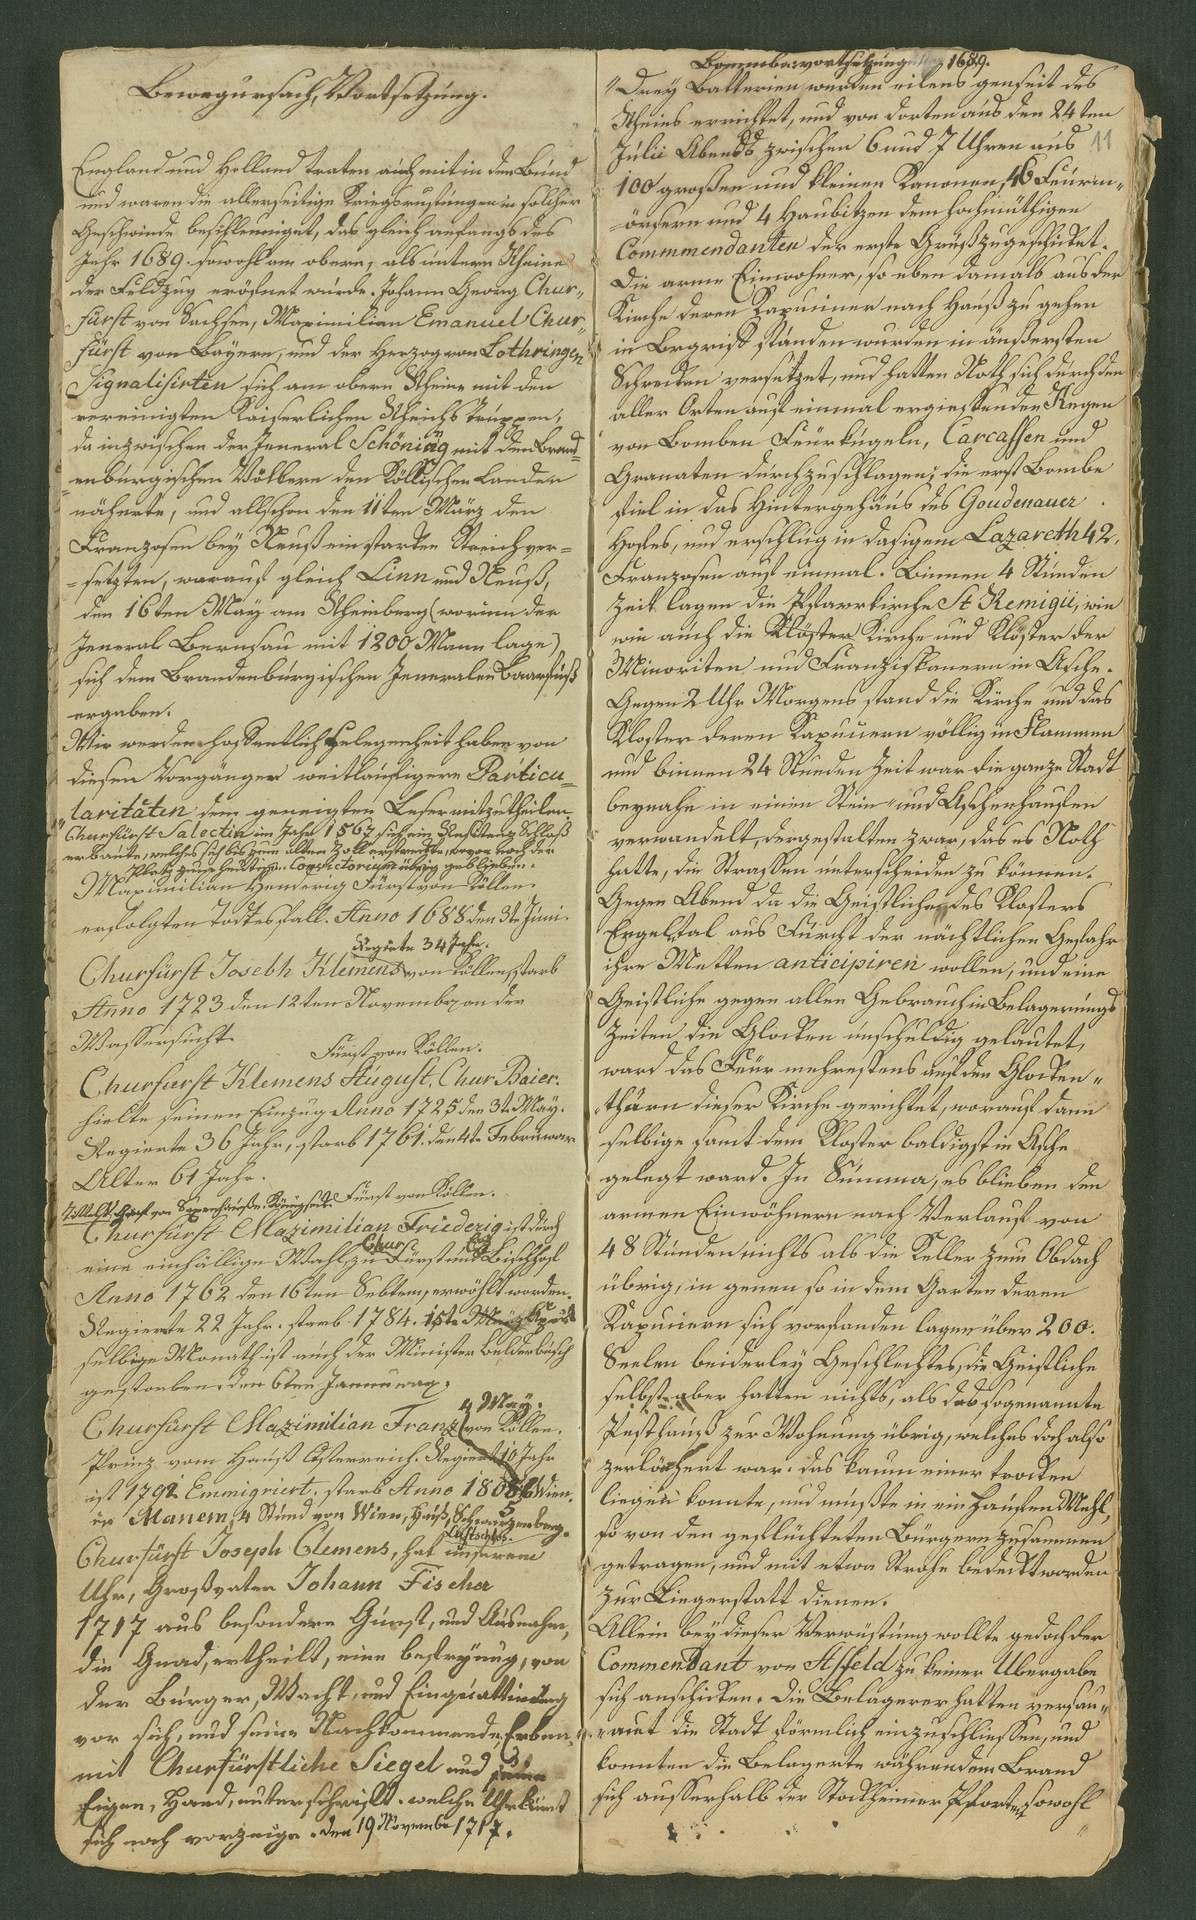 Bewegursach, Vortsetzung.
England und Holland traten auch mit in den Bund
und waren die allerseitige Kriegsrüstungen in solcher
Geschwinde beschleuniget, das gleich anfangs des
Jahr 1689. sowohl am obern, als untern Rheine
der Feldzug eröfnet wurde. Johann Georg Chur„
fürst von Sachsen, Maximilian Emanuel Chur„
fürst von Bayern, und der Herzog von Lothringen
Signalisirten sich am obern Rheine mit den
vereinigten Kaiserlichen Reichs Truppen,
da inzwischen der Jeneral Schöning mit den Brand„
enburgischen Völkern den Köllischen Landen
näherte, und allschon den 11ten März den
Franzosen bey Neuß ein starken Streich ver=
=setzten, worauf gleich Linn und Neuß,
den 16ten May am Rheinberg (worinn der
Jeneral Bernsau mit 1200 Mann lage)
sich dem Brandenburgischen Jeneralen Baarfuß
ergaben.
Wir werden hoffentlich Gelegenheit haben von
diesen Vorgänger weitläufigere Particu=
laritäten dem geneigten Leser mitzutheilen.
Churfürst Salectin im Jahr 1567 sich ein Residenz Schloß
erbaute, welches sich bis zum alten Zoll erstreckte, wovon noch der
Platz zum heutigen Consictorium übrig geblieben.
Maximilian Henderig Fürst von Köllen.
erfolgten Todtesfall. Anno 1688 den 3te Juni.
Regirte 34 Jahr.
Churfürst Joseph Klemens von Köllen, starb
Anno 1723 den 12ten Novemb. an der
Wassersucht.
Fürst von Köllen.
Churfurst Klemens August. Chur Baier.
hielte seinen Einzug Anno 1725 den 3te May.
Regierte 36 Jahr, starb 1761 den 4te Februwar
Alter 61 Jahr.
Graf von Königseck. Fürst von Köllen.
Churfürst Maximilian Friederig ist durch
eine einhällige Wahl, zu Chur Fürst und Erz Bischhof
Anno 1762 den 16ten Sebtem, erwöhlt worden.
Regierte 22 Jahr. starb 1784. 15te März April
selbige Monath ist auch der Minister Belderbusch
gestorben den 6ten Jannuwar.
4 May.
Churfürst Maximilian Franz von Köllen.
Prinz vom Hauß Österreich. Regiert 10 Jahr
ist 1792 Emmigriert. starb Anno 1801 bei Wien.
in Manem, 4 Stund von Wien, Hauß, Schwarzenberg.
Lustschloß.
Churfürst Joseph Clemens, hat unserem
Uhr, Großvater Johann Fischer
1717 aus besondere Gunst, und Ausnahm,
die Gnad, ertheilt, eine befreyung, von
der Bürger, Wacht, und Einquattirung
vor sich, und seine Nachkommende, Erben,
mit Churfürstliche Siegel und
Eigen, Hand, unterschrift. welche Uhrkunst
sich noch vorzeigt. den 19 Novemb 1717.
Bommbavortsetzung 1689.
11
„Drey Batterien wurden eilens jenseit des
Rheins errichtet, und von dorten aus den 24ten
Julii Abends zwischen 6 und 7 Uhren aus
100 großen und kleinen Kanonen, 46 Feürm„
=örsern und 4 Haubitzen dem hochmüthigen
Commmendanten der erste Gruß zugeschicket.
Die arme Einwohner, so eben damals aus der
Kirche deren Kapuziner nach Hauß zu gehen
in Begriff standen wurden in äusersten
Schrecken versetzet, und hatten Noth sich durch den
aller Orten auf einmal ergiessenden Regen
von Bomben Feürkugeln, Carcassen und
Granaten durchzuschlagen; die erst Bombe
fiel in das Hintergehäus des Goudenauer
Hofes, und erschlug in dasigem Lazareth 42.
Franzosen auf einmal. Binnen 4 Stunden
Zeit lagen die Pfarrkirche St Remigii, wie
wie auch die Klöster Kirche und Klöster der
Minoriten und Franziskanern in Asche.
Gegen 2 Uhr Morgens stand die Kirche und das
Kloster deren Kapucinern völlig in Flammen
und binnen 24 Stunden Zeit war die ganze Stadt
beynahe in einen Stein= und Aschenhaufen
verwandelt, dergestalten zwar, das es Noth
hatte, die Strassen unterscheiden zu können.
Gegen Abend da die Geistliche des Klosters
Engeltal aus Furcht der nächtlichen Gefahr
ihre Metten anticipiren wollen, und eine
Geistliche gegen allen Gebrauch in Belagerungs
Zeiten die Glocken unschuldig gelautet,
ward das Feür mehrestens auf den Glocken„
thurn dieser Kirche gerichtet, worauf dann
selbige samt dem Kloster baldigst in Asche
gelegt ward. In Summa, es blieben den
armen Einwöhnern nach Verlauf von
48 Stunden nichts als die Keller zum Obdach
übrig, in jenen so in dem Garten deren
Kapucinern sich vorfanden lagen über 200.
Seelen beiderley Geschlechtes, die Geistliche
selbst aber hatten nichts, als das sogenannte
Pesthauß zur Wohnung übrig, welches doch also
zerlöchert war. das kaum einer trocken
liegen konnte, und mußte in ein Haufen Mehl,
so von den geflüchteten Bürgern zusammen
getragen, und mit etwa Strohe bedeckt worden
zur Liegerstatt dienen.
Allein bey dieser Verwüstung wollte jedoch der
Commendant von Asfeld zu keiner Übergabe
sich anschicken. Die Belagerer hatten versau„
=amt die Stadt förmlich einzuschliessen, und
konnten die Belagerte währendem Brand
sich ausserhalb der Stockheimer Pforten sowohl